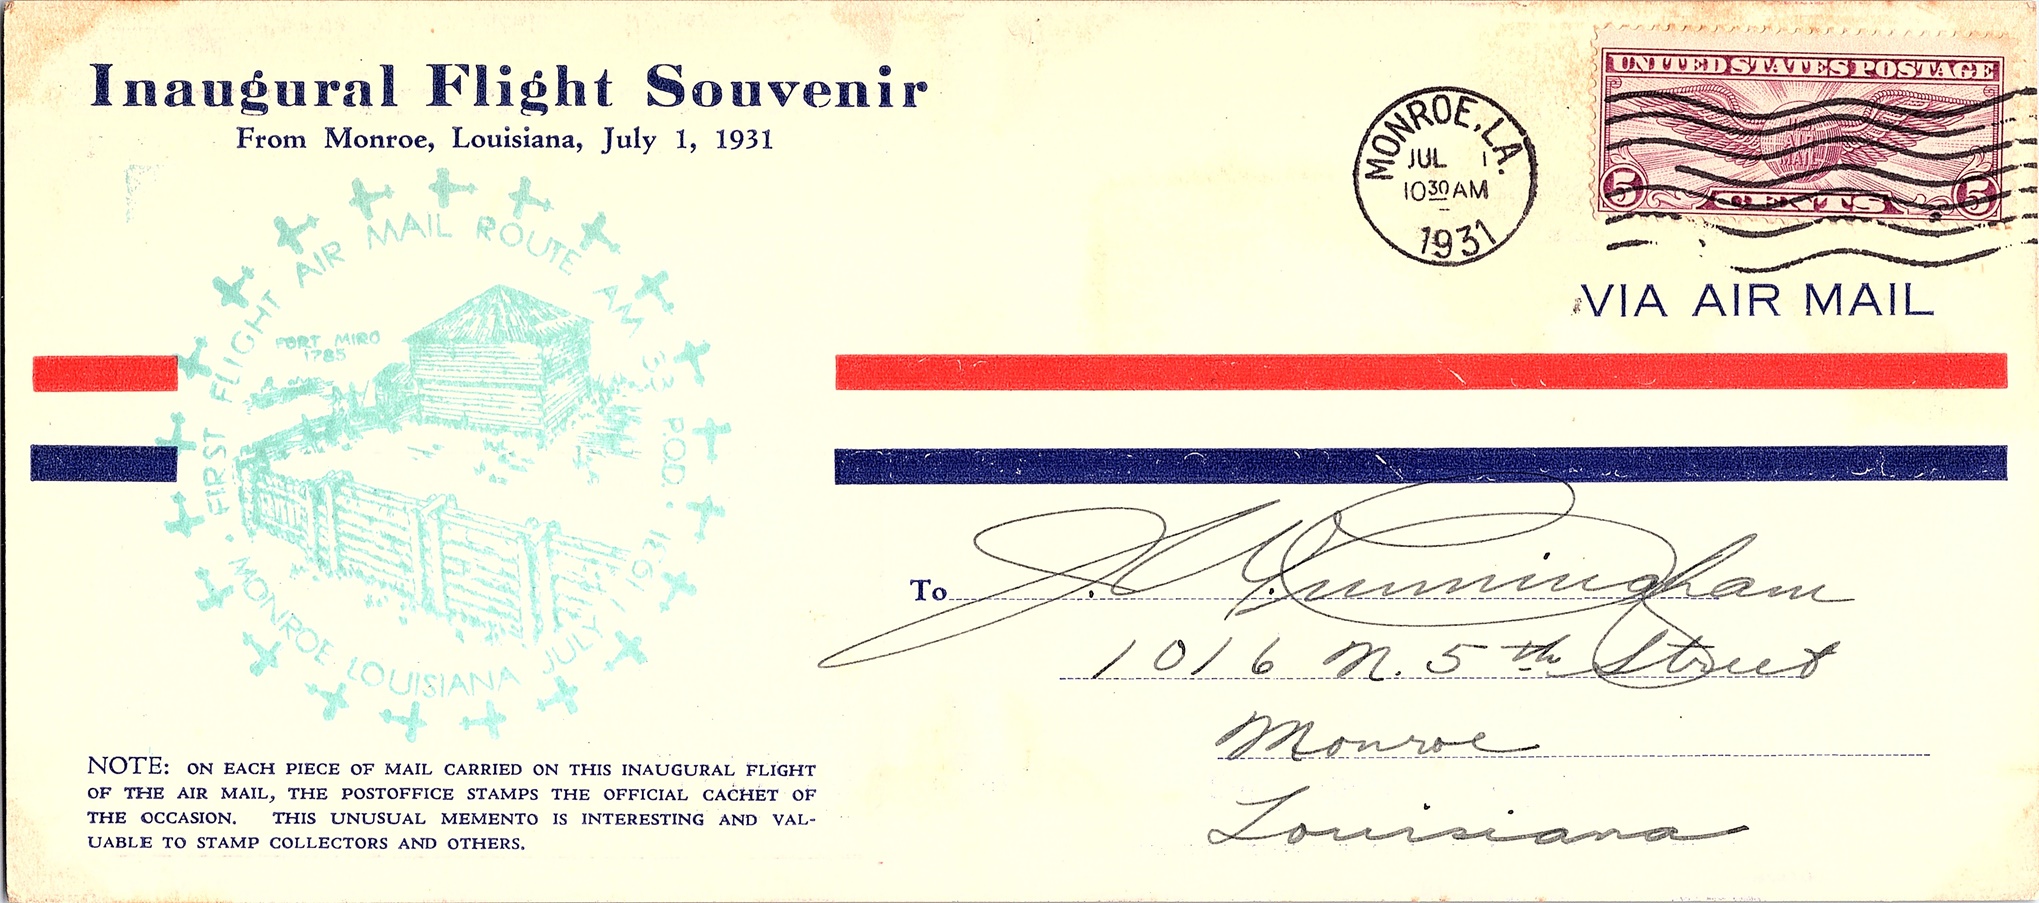 Inaugural Flight Souvenir
From Monroe, Louisiana, July 1, 1931
UNITED STATES POSTAGE
AIR MAIL
5 CENTS 5
MONROE, LA.
JUL 1
10 30 AM
1931
VIA AIR MAIL
FIRST FLIGHT AIR MAIL ROUTE AM 33 P.O.D.
FORT MIRO
1785
MONROE LOUISIANA JULY 1 1931
To J. V. Cunningham
1016 N. 5th Street
Monroe
Louisiana
NOTE: ON EACH PIECE OF MAIL CARRIED ON THIS INAUGURAL FLIGHT
OF THE AIR MAIL, THE POSTOFFICE STAMPS THE OFFICIAL CACHET OF
THE OCCASION. THIS UNUSUAL MEMENTO IS INTERESTING AND VAL-
UABLE TO STAMP COLLECTORS AND OTHERS.